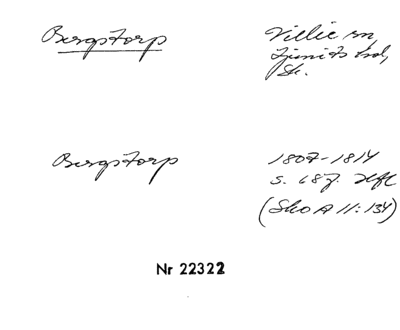 Bergstorp
Villie sn,
Ljunits hd,
Sk.
Bergstorp
1807-1814
s. 687. Hfl
(Sko A II: 134)
Nr 22322